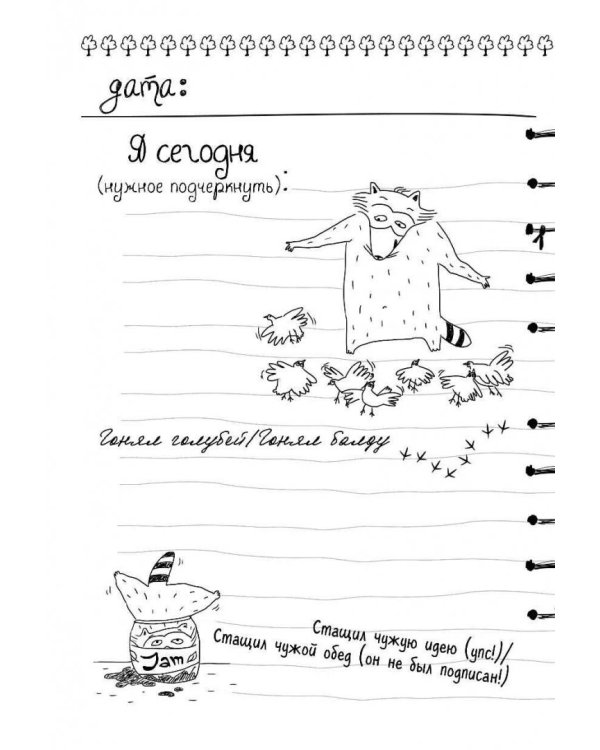 дата:
Я сегодня
(нужное подчеркнуть):
Гонял голубей/Гонял балду
Jam
Стащил чужую идею (упс!)/
Стащил чужой обед (он не был подписан!)